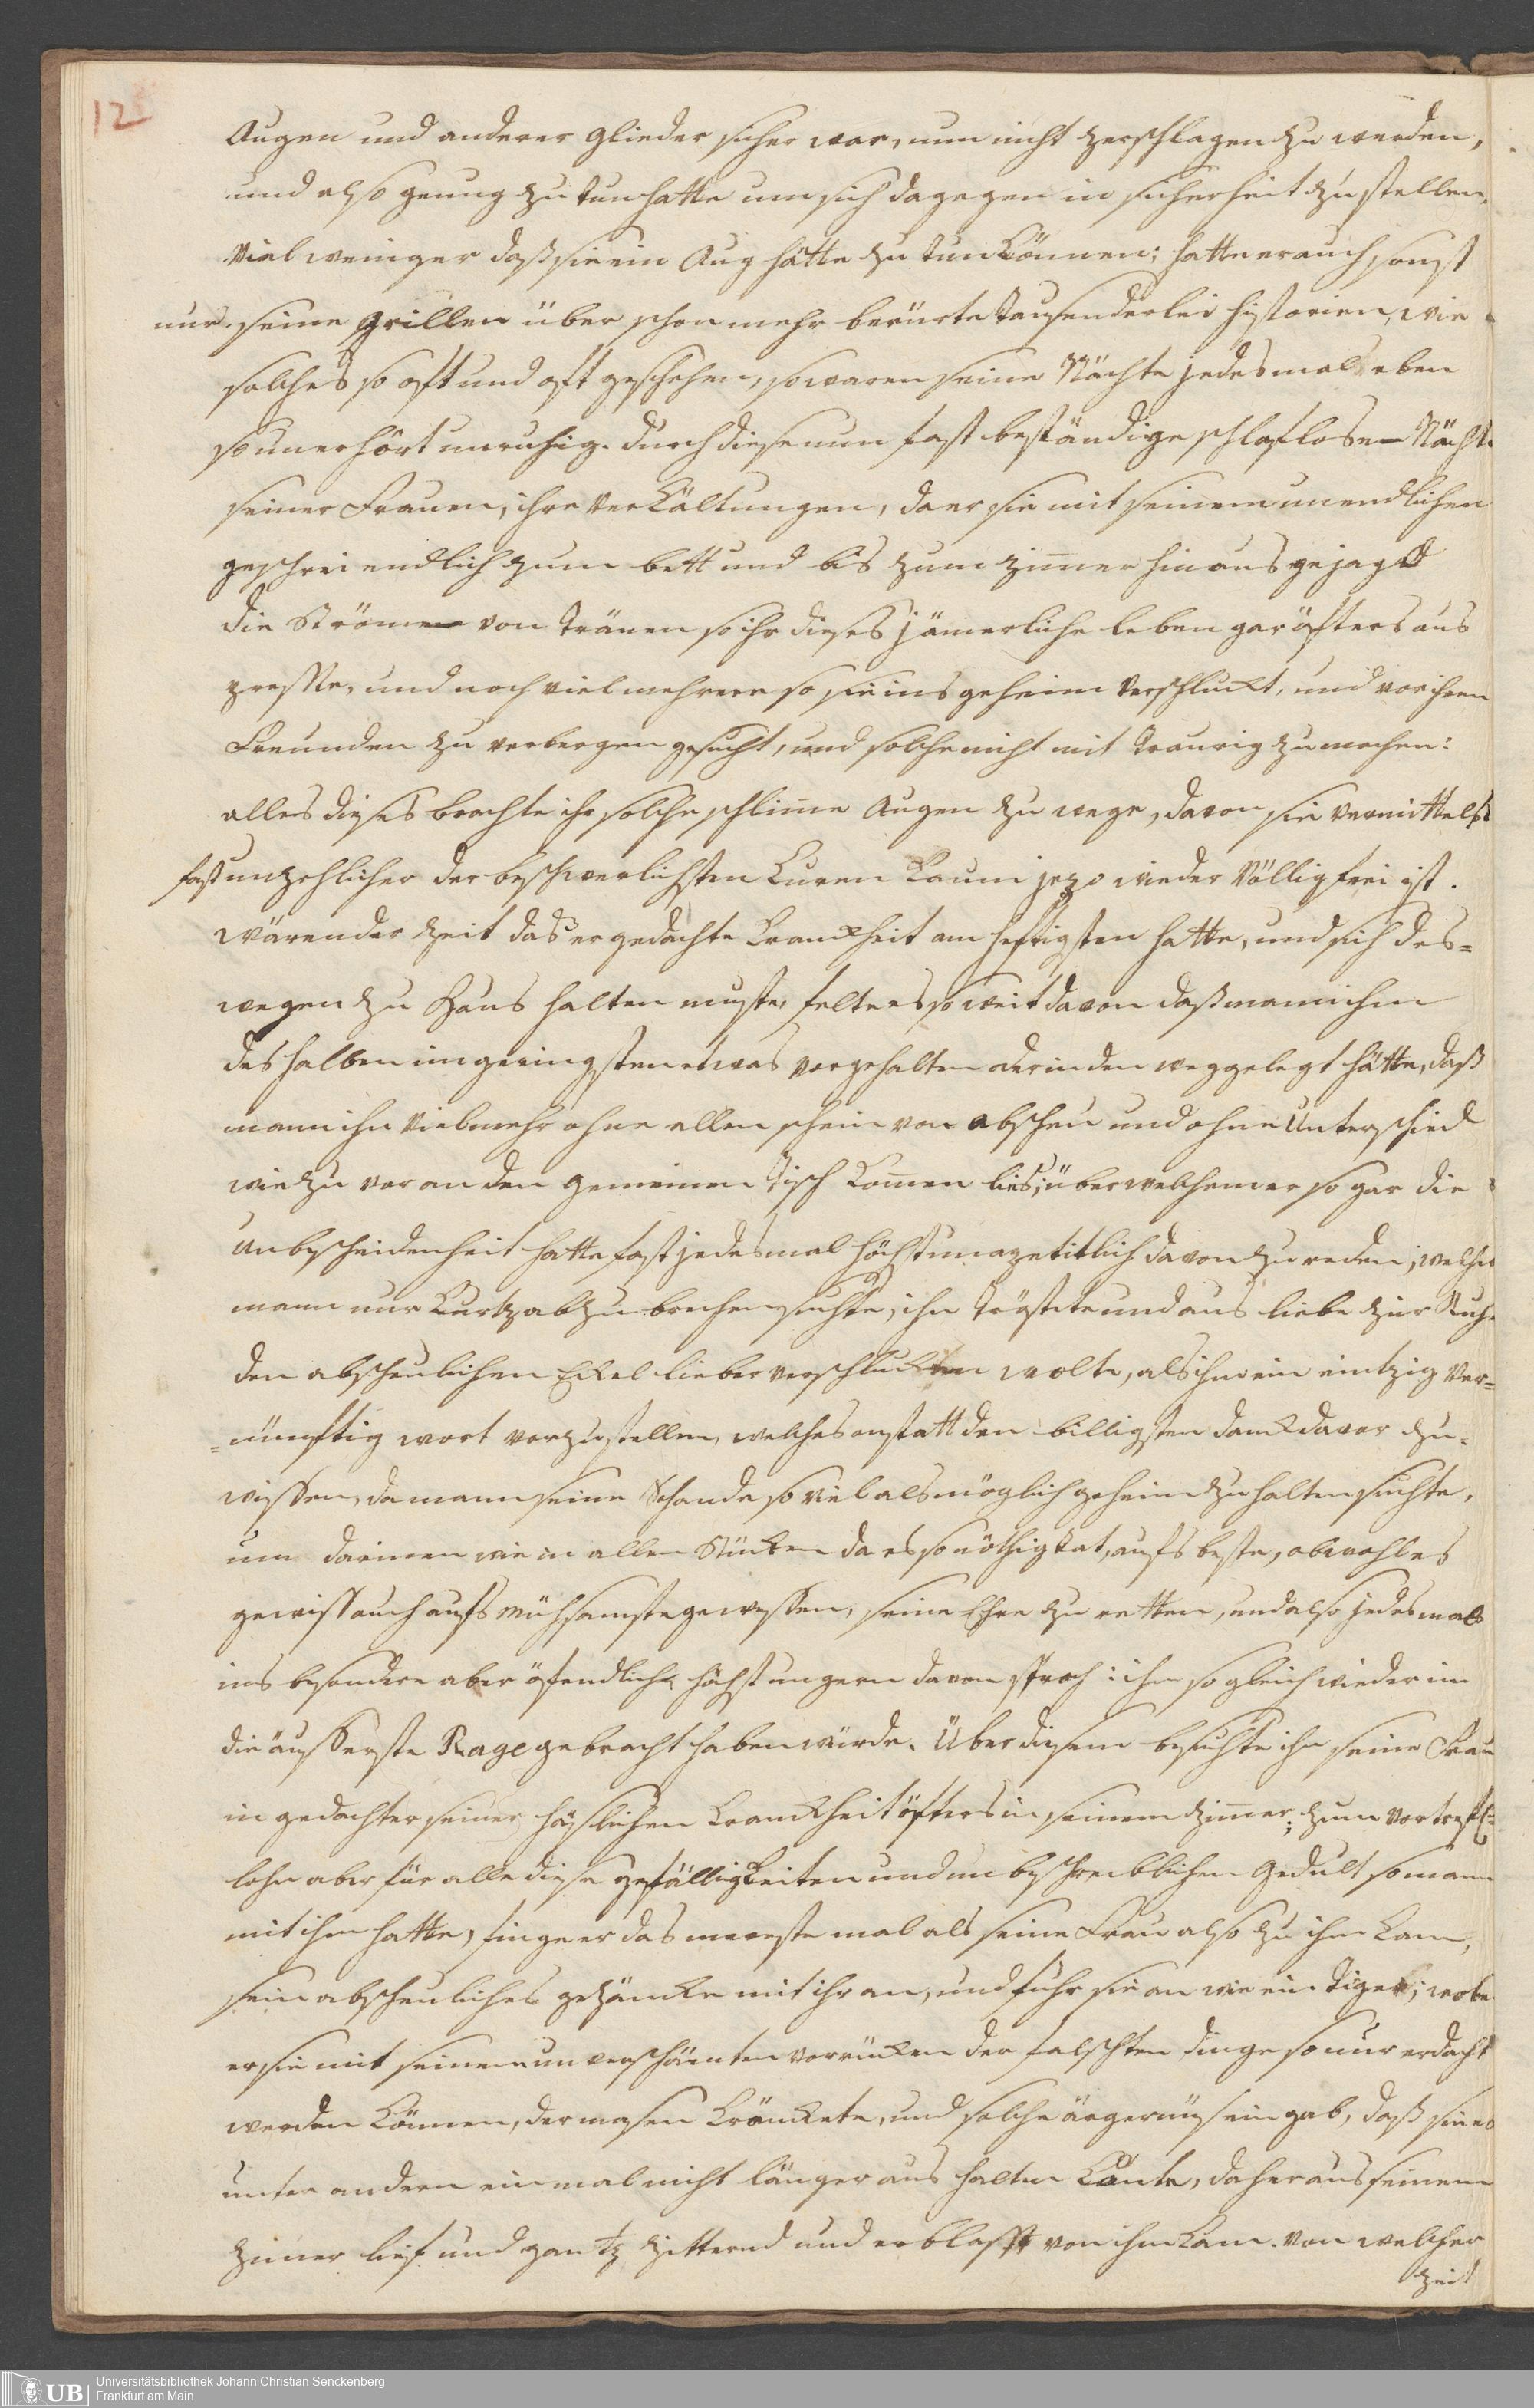 12
Augen und anderer Glieder sicher war, um nicht zerschlagen zu werden,
und also genug zu tun hatte um sich dagegen in sicherheit zu stellen,
viel weniger daß sie ein Aug hätte zu tun können; hatte er auch sonst
nur seine Grillen über schon mehr berürte tausenderlei historien, wie
solches so oft und oft geschehen, so waren seine Nächte jedesmals eben
so unerhört unruhig. durch diese nun fast beständige schlaflose Nächte
seiner Frauen, ihre verkältungen, da er sie mit seinem unendlichen
geschrei endlich zum bett und bis zum zimer hinaus gejagt
die Ströme von Tränen so ihr dieses jämerliche leben gar öfters aus
presste, und noch viel mehrere so sie ins geheim verschluckt, und vor ihren
Freunden zu verbergen gesucht, und solche nicht mit traurig zu machen:
alles dieses brachte ihr solche schlime Augen zu wege, davon sie vermittelst
fast unzehlicher der beschwerlichsten Curen kaum jezo wieder völlig frei ist.
wärender Zeit das er gedachte krankheit am heftigsten hatte, und sich des=
wegen zu Haus halten muste, felte es so weit davon daß man ihm
deshalben im geringsten etwas vorgehalten oder in den weg gelegt hätte, daß
mann ihn vielmehr ohne allen schein von abscheu und ohne Unterschied
wie zu vor an den gemeinen Tisch komen lies; über welchem er so gar die
Unbescheidenheit hatte fast jedesmal höchst unapetitlich davon zu reden; welches
mann nur kurtz abzubrechen suchte, ihn tröstete und aus liebe zur Ruhe
den abscheulichen Eckel lieber verschlucken wolte, als ihm ein eintzig ver=
=nünftig wort vorzustellen, welches anstatt den billigsten dank davor zu
wissen, da mann seine Schande so viel als möglich geheim zu halten suchte,
um darinnen wie in allen Stücken da es so nöthig tat, aufs beste, obwohl es
gewiss auch aufs mühsamste gewesen, seine Ehre zu retten, und also jedesmals
ins besondere aber öfendlich höchst ungern davon sprach: ihn so gleich wieder in
die äusserste Rage gebracht haben würde. Über diesem besuchte ihn seine Frau
in gedachter seiner häslichen krankheit öfters in seinem zimer; zum vortrefl=
lohn aber für alle diese gefälligkeiten und unbeschreiblichen Gedult so mann
mit ihm hatte, finge er das meerste mal als seine Frau also zu ihm kam,
sein abscheuliches gezäncke mit ihr an, und fuhr sie an wie ein Tiger; wobei
er sie mit seinem unverschämten vorrücken der falschten dinge so nur erdacht
werden können, dermasen kränckete, und solche ärgernüs ein gab, daß sie es
unter andern einmal nicht länger aus halten konte, daher aus seinem
zimer lief und gantz zitternd und erblasst von ihm kam. von welcher
Zeit
Universitätsbibliothek Johann Christian Senckenberg
Frankfurt am Main
UB